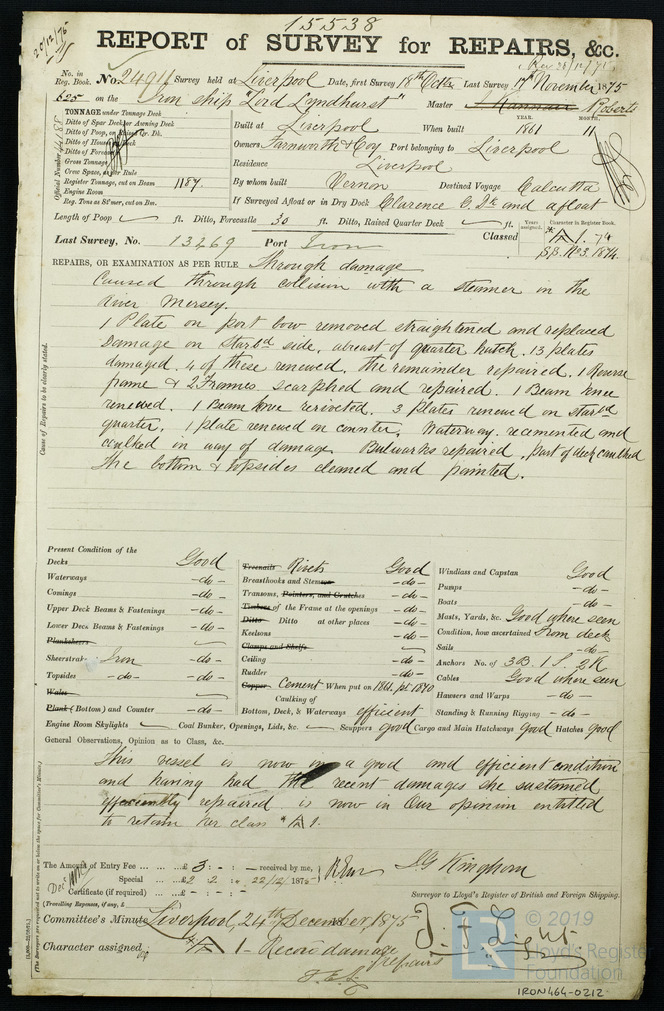 15538
20/12/75
REPORT of SURVEY for REPAIRS, &c.
Rec 28/12/75
No. in Reg. Book. No. 24911 Survey held at Liverpool Date, first Survey 18th Octr Last Survey 17 November 1875
625 on the Iron ship "Lord Lyndhurst" Master Roberts
TONNAGE under Tonnage Deck
Ditto of Spar Deck or Awning Deck
Ditto of Poop, or Raised Qr. Dk.
Ditto of House on Deck
Ditto of Forecastle
Gross Tonnage
Crew Space, as per Rule
Register Tonnage, cut on Beam 1187.
Engine Room
Reg. Tons as St'mer, cut on Bm.
Official Number
Built at Liverpool When built YEAR. 1861 MONTH. 11
Owners Farnworth & Coy Port belonging to Liverpool
Residence Liverpool
By whom built Vernon Destined Voyage Calcutta
If Surveyed Afloat or in Dry Dock Clarence G. Dk and afloat
Length of Poop ft. Ditto, Forecastle 30 ft. Ditto, Raised Quarter Deck ft.
Years assigned. Character in Register Book.
Last Survey, No. 13269 Port Iron Classed A 1. 74
S.S. No 3. 1874.
REPAIRS, OR EXAMINATION AS PER RULE Through damage
Cause of Repairs to be clearly stated.
Caused through collision with a steamer in the
River Mersey.
1 Plate on port bow removed straightened and replaced
Damage on Starbd side, abreast of quarter hatch. 13 plates
damaged. 4 of these renewed. the remainder repaired. 1 Reverse
frame & 2 Frames scarphed and repaired. 1 Beam knee
renewed. 1 Beam knee reriveted. 3 plates renewed on starbd
quarter. 1 plate renewed on counter. Waterway, recemented and
caulked in way of damage. Bulwarks repaired, part of deck caulked
The bottom & topsides cleaned and painted.
Present Condition of the
Decks Good
Waterways -do-
Comings -do-
Upper Deck Beams & Fastenings -do-
Lower Deck Beams & Fastenings -do-
Planksheers
Sheerstrak Iron -do-
Topsides -do- -do-
Wales
Plank (Bottom) and Counter -do-
Treenails Rivets Good
Breasthooks and Stemson -do-
Transoms, Pointers, and Crutches -do-
Timbers of the Frame at the openings -do-
Ditto Ditto at other places -do-
Keelsons -do-
Clamps and Shelfs
Ceiling -do-
Rudder -do-
Copper Cement When put on 1861. pt 1870
Caulking of Bottom, Deck, & Waterways efficient
Windlass and Capstan Good
Pumps -do-
Boats -do-
Masts, Yards, &c. Good where seen
Condition, how ascertained From deck
Sails -do-
Anchors No. of 3B. 1 S. 2K
Cables Good where seen
Hawsers and Warps -do-
Standing & Running Rigging -do-
Engine Room Skylights Coal Bunker, Openings, Lids, &c. Scuppers good Cargo and Main Hatchways Good Hatches good
General Observations, Opinion as to Class, &c.
This vessel is now in a good and efficient condition
and having had the recent damages she sustained
efficiently repaired is now in our opinion entitled
to retain her class "A 1.
The Amount of Entry Fee £ 3 : - : - received by me,
Special £ 2 2 : - 22/12/1875
Certificate (if required) £ - : - : -
(Travelling Expenses, if any, £
J G Kingham
Surveyor to Lloyd's Register of British and Foreign Shipping.
J. F. Light
Committee's Minute Liverpool, 24th December, 1875
Character assigned A 1 - Record damage
repairs
(The Surveyors are requested not to write on or below the space for Committee's Minute.)
© 2019
Lloyd's Register
Foundation
IRON464-0212